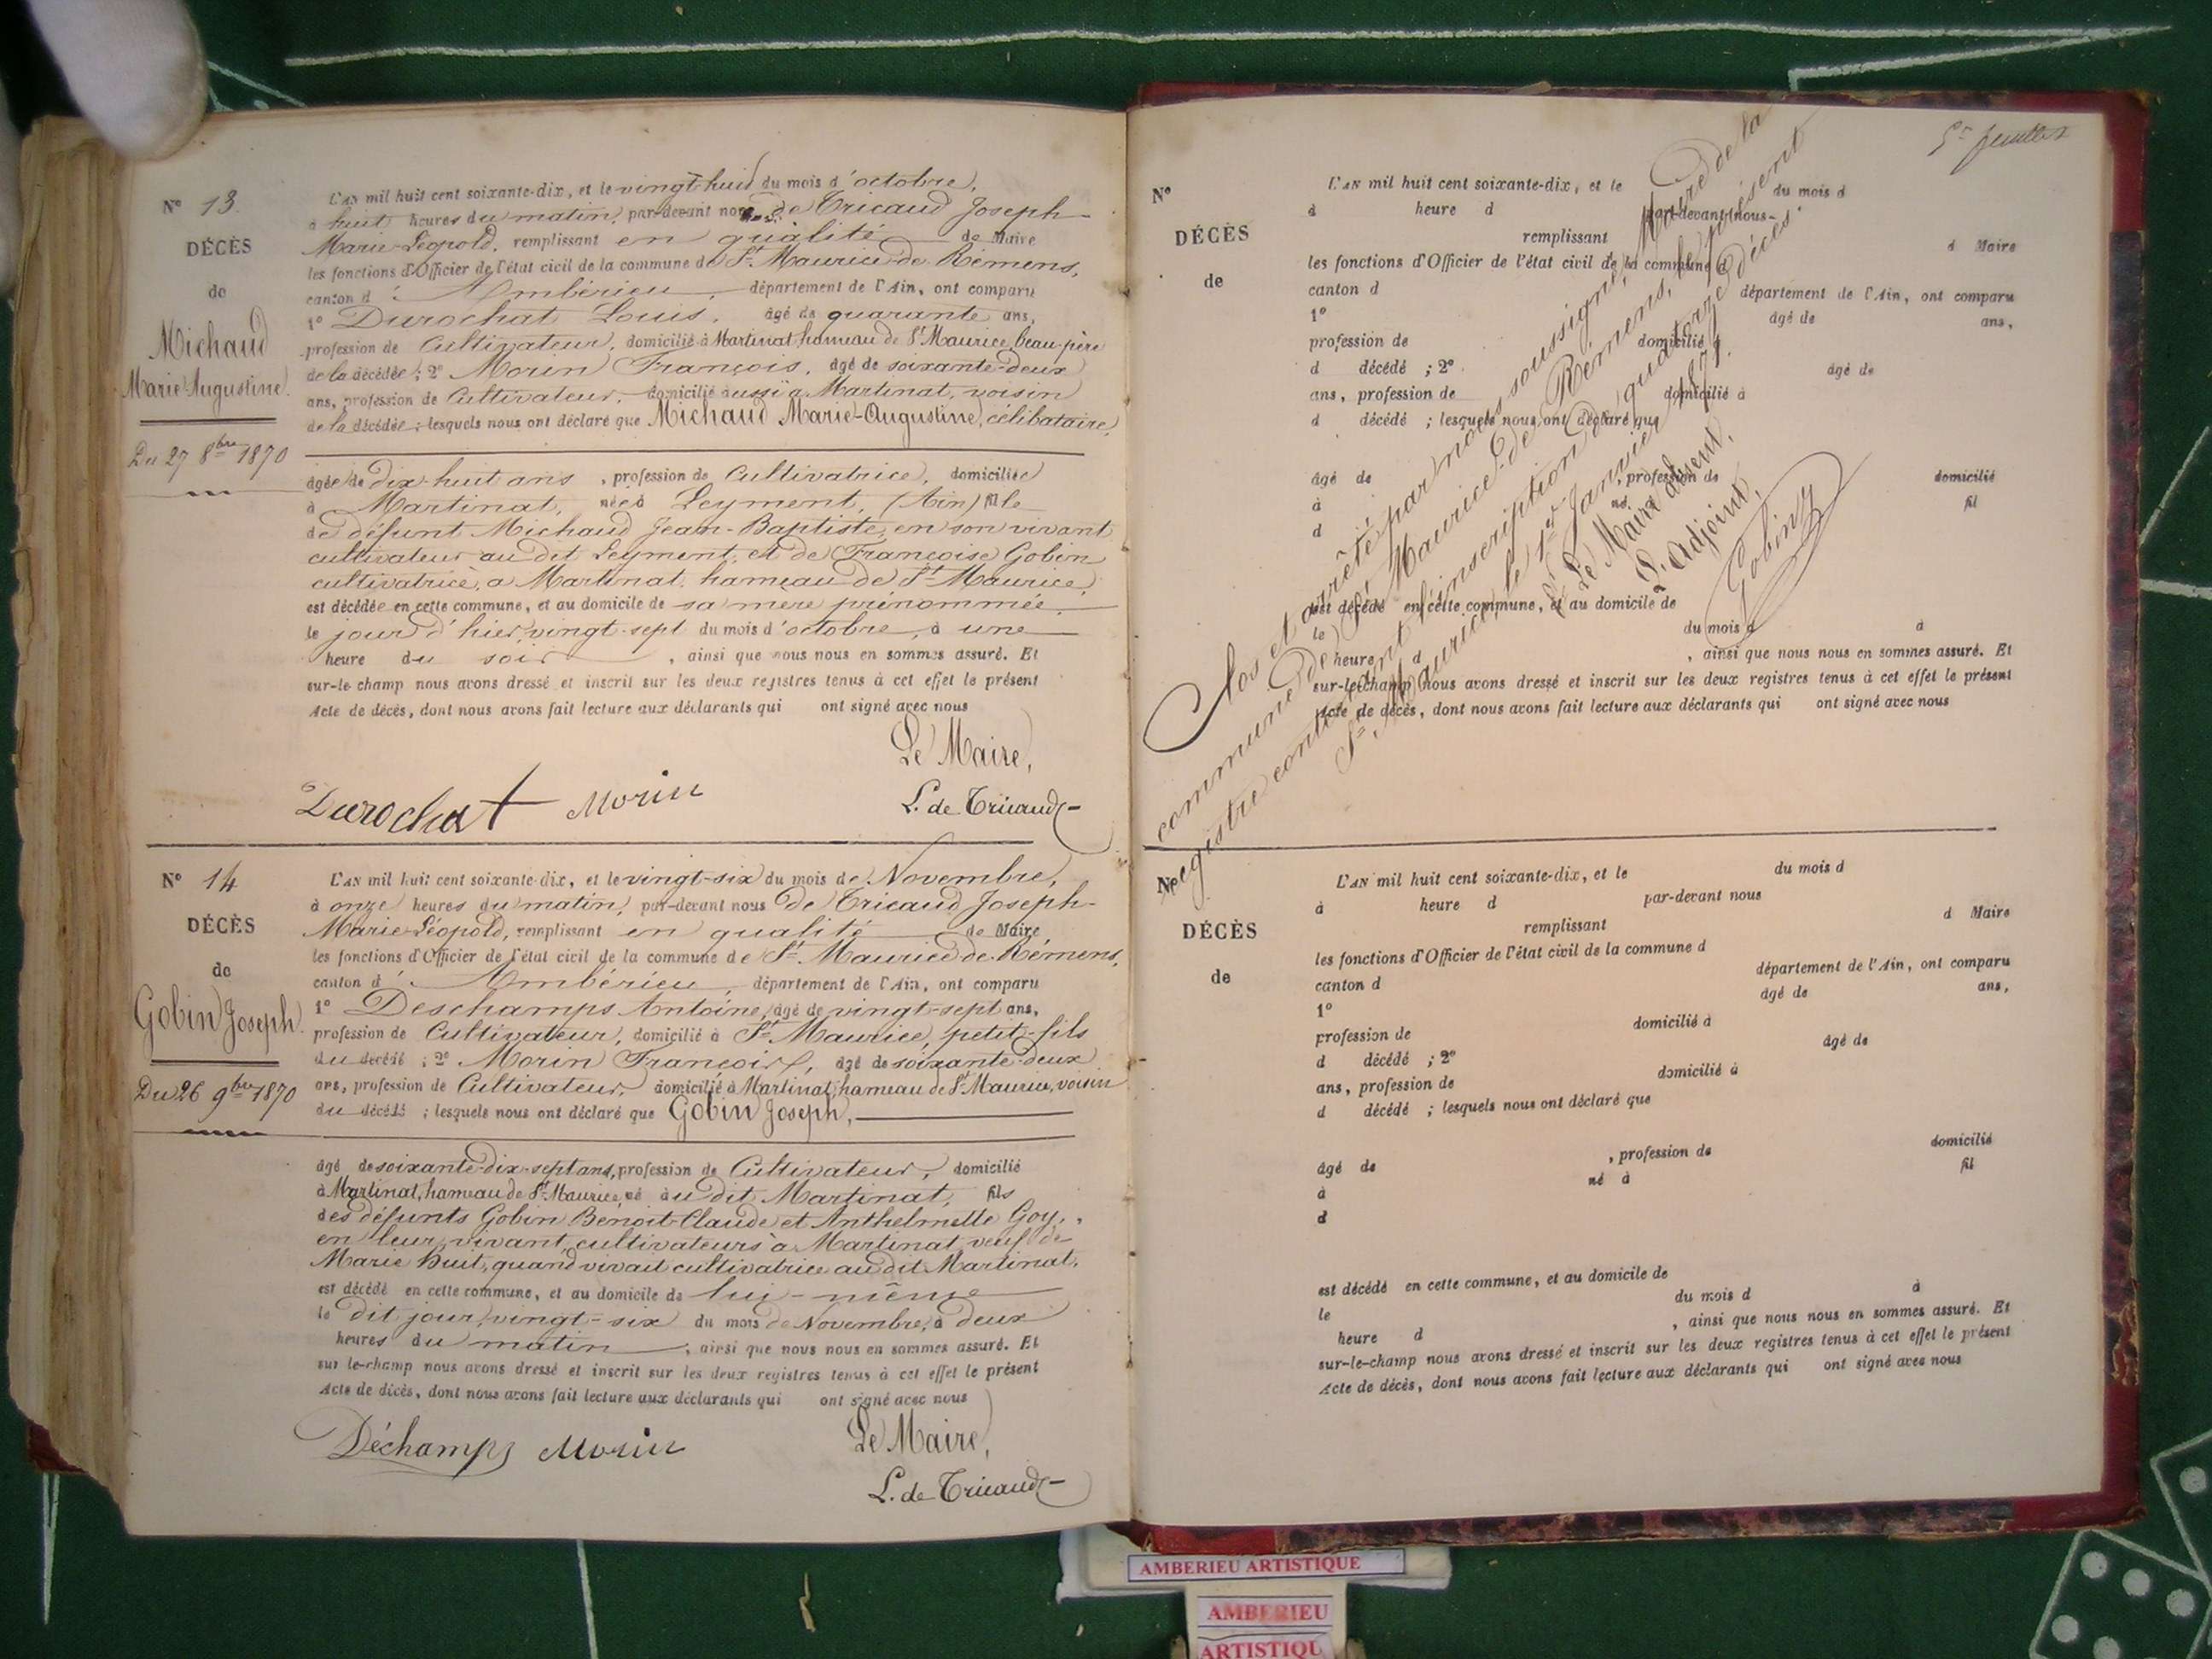 N° 13.
DÉCÈS
de
Michaud
Marie-Augustine.
Du 27 8bre 1870
L'AN mil huit cent soixante-dix, et le vingt-huit du mois d'octobre,
à huit heures du matin, par-devant nous de Tricaud Joseph-
Marie-Léopold, remplissant en qualité de Maire
les fonctions d'Officier de l'état civil de la commune de St Maurice-de-Rémens,
canton d'Ambérieu, département de l'Ain, ont comparu
1° Durochat Louis, âgé de quarante ans,
profession de Cultivateur, domicilié à Martinat, hameau de St Maurice, beau-père
de la décédée ; 2° Morin François, âgé de soixante-deux
ans, profession de Cultivateur, domicilié aussi à Martinat, voisin
de la décédée ; lesquels nous ont déclaré que Michaud Marie-Augustine, célibataire,
âgée de dix-huit ans, profession de Cultivatrice, domiciliée
à Martinat, née à Leyment, (Ain) fille
de défunt Michaud Jean-Baptiste, en son vivant
cultivateur au dit Leyment, et de Françoise Gobin
cultivatrice, à Martinat, hameau de St Maurice,
est décédée en cette commune, et au domicile de sa mère prénommée,
le jour d'hier, vingt-sept du mois d'octobre, à une
heure du soir, ainsi que nous nous en sommes assuré. Et
sur-le-champ nous avons dressé et inscrit sur les deux registres tenus à cet effet le présent
Acte de décès, dont nous avons fait lecture aux déclarants qui ont signé avec nous
Le Maire,
Durochat Morin L. de Tricaud
N° 14
DÉCÈS
de
Gobin Joseph.
Du 26 9bre 1870
L'AN mil huit cent soixante-dix, et le vingt-six du mois de Novembre,
à onze heures du matin, par-devant nous de Tricaud Joseph-
Marie-Léopold, remplissant en qualité de Maire
les fonctions d'Officier de l'état civil de la commune de St Maurice-de-Rémens,
canton d'Ambérieu, département de l'Ain, ont comparu
1° Deschamps Antoine, âgé de vingt-sept ans,
profession de Cultivateur, domicilié à St Maurice, petit-fils
du décédé ; 2° Morin François, âgé de soixante-deux
ans, profession de Cultivateur, domicilié à Martinat, hameau de St Maurice, voisin
du décédé ; lesquels nous ont déclaré que Gobin Joseph,
âgé de soixante-dix-sept ans, profession de Cultivateur, domicilié
à Martinat, hameau de St Maurice, né au dit Martinat, fils
des défunts Gobin Benoit-Claude et Anthelmette Goy,
en leur vivant, cultivateurs à Martinat, veuf de
Marie Huit, quand vivait cultivatrice au dit Martinat,
est décédé en cette commune, et au domicile de lui-même
le dit jour, vingt-six du mois de Novembre, à deux
heures du matin, ainsi que nous nous en sommes assuré. Et
sur-le-champ nous avons dressé et inscrit sur les deux registres tenus à cet effet le présent
Acte de décès, dont nous avons fait lecture aux déclarants qui ont signé avec nous
Le Maire,
Déchamps Morin
L. de Tricaud
5e feuillet
N°
DÉCÈS
de
L'AN mil huit cent soixante-dix, et le du mois d
à heure d par-devant nous
remplissant d Maire
les fonctions d'Officier de l'état civil de la commune d
canton d département de l'Ain, ont comparu
1° âgé de ans,
profession de domicilié à
d décédé ; 2° âgé de
ans, profession de domicilié à
d décédé ; lesquels nous ont déclaré que
âgé de , profession de domicilié
à né à fil
d
est décédé en cette commune, et au domicile de
le du mois d à
heure d , ainsi que nous nous en sommes assuré. Et
sur-le-champ nous avons dressé et inscrit sur les deux registres tenus à cet effet le présent
Acte de décès, dont nous avons fait lecture aux déclarants qui ont signé avec nous
Clos et arrêté par nous soussigné, Maire de la
commune de St Maurice-de-Rémens, le présent
registre contenant l'inscription de quatorze décès
St Maurice, le 1er Janvier 1871.
Le Maire absent,
L'Adjoint,
Gobin
N°
DÉCÈS
de
L'AN mil huit cent soixante-dix, et le du mois d
à heure d par-devant nous
remplissant d Maire
les fonctions d'Officier de l'état civil de la commune d
canton d département de l'Ain, ont comparu
1° âgé de ans,
profession de domicilié à
d décédé ; 2° âgé de
ans, profession de domicilié à
d décédé ; lesquels nous ont déclaré que
âgé de , profession de domicilié
à né à fil
d
est décédé en cette commune, et au domicile de
le du mois d à
heure d , ainsi que nous nous en sommes assuré. Et
sur-le-champ nous avons dressé et inscrit sur les deux registres tenus à cet effet le présent
Acte de décès, dont nous avons fait lecture aux déclarants qui ont signé avec nous
AMBERIEU ARTISTIQUE
AMBERIEU
ARTISTIQU